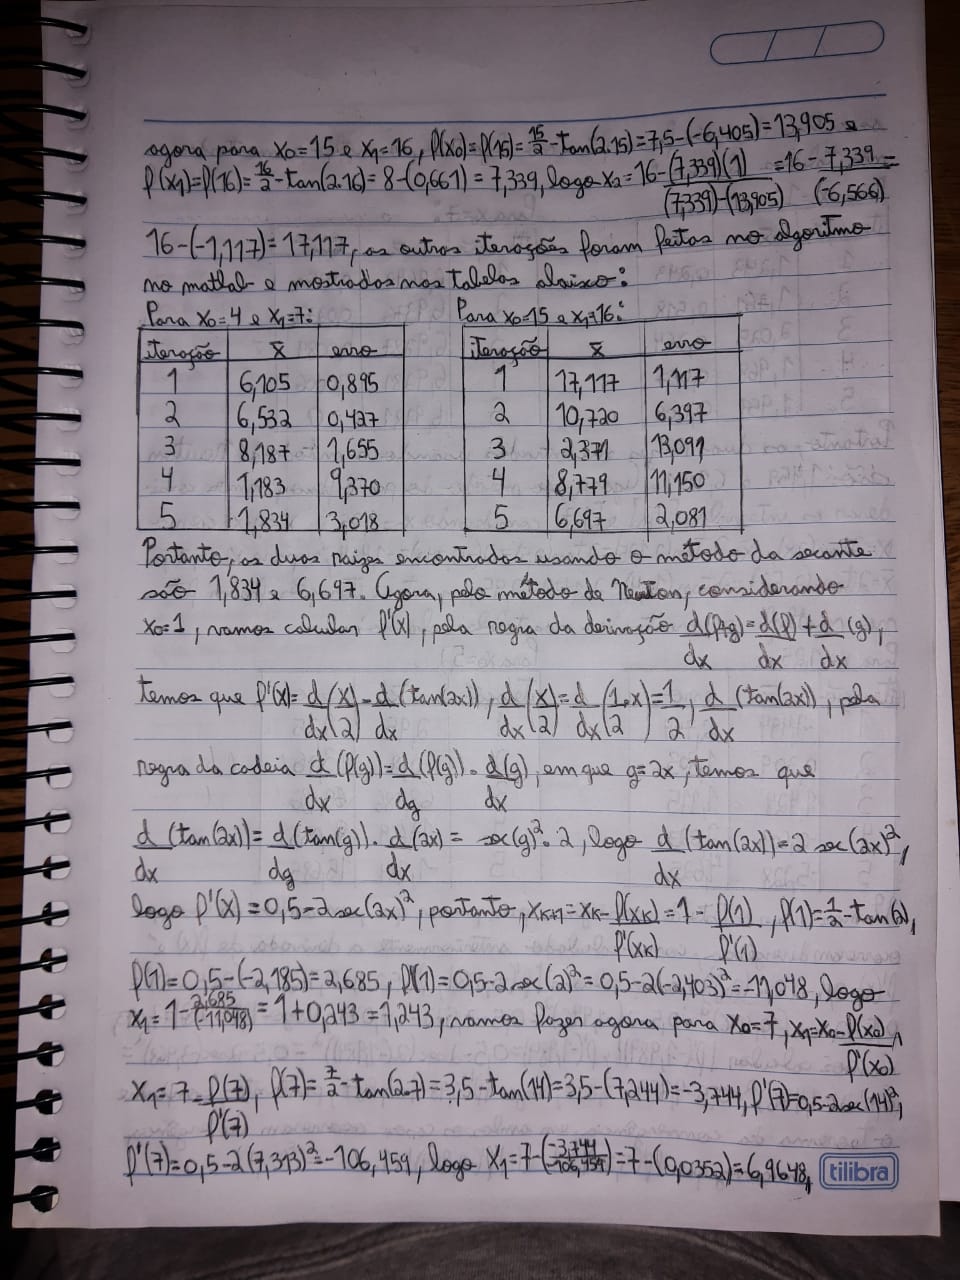 agora para x0=15 e x1=16, f(x0)=f(15)=15/2-tan(2.15)=7,5-(-6,405)=13,905 e
f(x1)=f(16)=16/2-tan(2.16)=8-(0,661)=7,339, logo x2=16-(7,339)(1)/((7,339)-(13,905))=16-7,339/(-6,566)=
16-(-1,117)=17,117, as outras iterações foram feitas no algoritmo
no matlab e mostrados nas tabelas abaixo:
Para x0=4 e x1=7: Para x0=15 e x1=16:
iteração x̄ erro iteração x̄ erro
1 6,105 0,895 1 17,117 1,117
2 6,532 0,427 2 10,720 6,397
3 8,187 1,655 3 2,371 13,091
4 1,183 9,370 4 8,779 11,150
5 1,834 3,018 5 6,697 2,081
Portanto, as duas raízes encontradas usando o método da secante
são 1,834 e 6,697. Agora, pelo método de Newton, considerando
x0=1, vamos calcular f'(x), pela regra da derivação d(f+g)/dx=d(f)/dx+d/dx(g),
temos que f'(x)=d/dx(x/2)-d/dx(tan(2x)), d/dx(x/2)=d/dx(1/2.x)=1/2, d/dx(tan(2x)), pela
regra da cadeia d/dx(f(g))=d/dg(f(g)).d/dx(g), em que g=2x, temos que
d/dx(tan(2x))=d/dg(tan(g)).d/dx(2x)=sec(g)².2, logo d/dx(tan(2x))=2sec(2x)²,
logo f'(x)=0,5-2sec(2x)², portanto, xk+1=xk-f(xk)/f'(xk)=1-f(1)/f'(1), f(1)=1/2-tan(2),
f(1)=0,5-(-2,185)=2,685, f'(1)=0,5-2sec(2)²=0,5-2(-2,403)²=-11,048, logo
x1=1-2,685/(-11,048)=1+0,243=1,243, vamos fazer agora para x0=7, x1=x0-f(x0)/f'(x0),
x1=7-f(7)/f'(7), f(7)=7/2-tan(2.7)=3,5-tan(14)=3,5-(7,244)=-3,744, f'(7)=0,5-2sec(14)²,
f'(7)=0,5-2(7,313)²=-106,459, logo x1=7-(-3,744/-106,459)=7-(0,0352)=6,9648,
tilibra